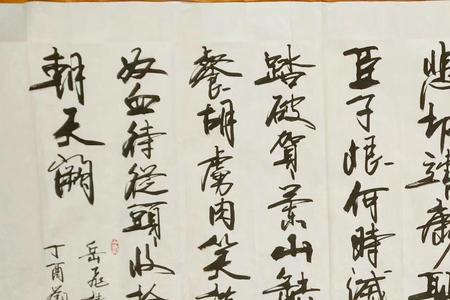 悲切靖康耻
臣子恨何時滅
踏破賀蘭山缺
餐胡虜肉笑
奴血待從頭收拾
朝天闕
岳飛
丁酉